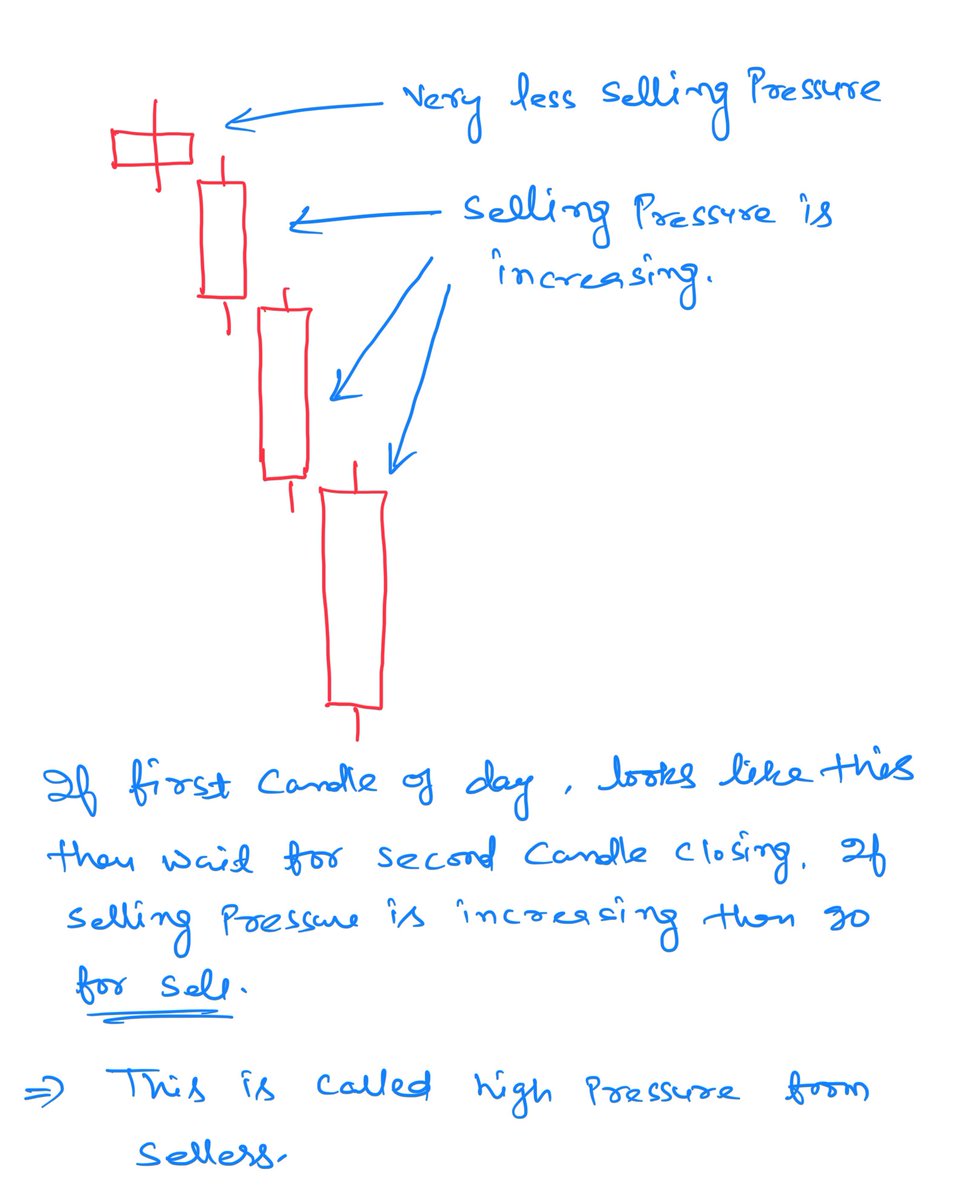 Very less selling Pressure
Selling Pressure is
increasing.
If first Candle of day, looks like this
then wait for second Candle closing. If
selling Pressure is increasing then go
for sell.
⇒ This is called high Pressure from
sellers.